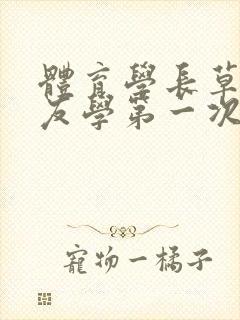 體育學長草
友學第一次
寵物一橘子